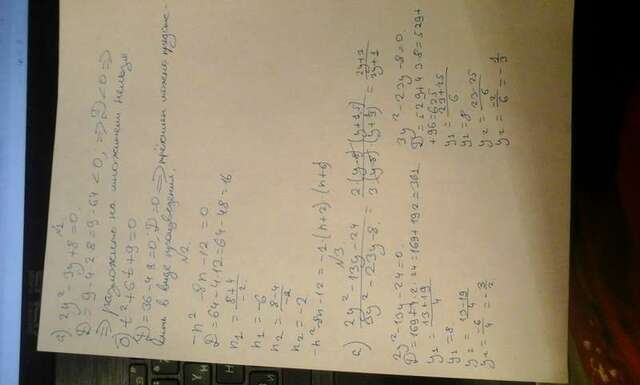 №1.
а) 2y² - 3y + 8 = 0
D = 9 - 4·2·8 = 9 - 64 < 0, ⇒ D < 0 ⇒
⇒ разложить на множители нельзя
б) t² + 6t + 9 = 0
D = 36 - 4·9 = 0, D = 0 ⇒ трёхчлен можно представить в виде произведения.
№2.
-n² - 8n - 12 = 0
D = 64 - 4·12 = 64 - 48 = 16
n₁ = 8+4/-2
n₁ = -6
n₂ = 8-4/-2
n₂ = -2
-n² - 8n - 12 = -1(n+2)(n+6)
№3
а) 2y² - 13y - 24 / 3y² - 23y - 8 = 2(y-8)(y+3/2) / 3(y-8)(y+1/3) = 2y+3 / 3y+1
2y² - 13y - 24 = 0.
D = 169 + 4·2·24 = 169 + 192 = 361
y₁ = 13+19/4
y₁ = 8
y₂ = 13-19/4
y₂ = -6/4 = -3/2
3y² - 23y - 8 = 0.
D = 529 + 4·3·8 = 529 +
+ 96 = 625
y₁ = 23+25/6
y₁ = 8
y₂ = 23-25/6
y₂ = -2/6 = -1/3